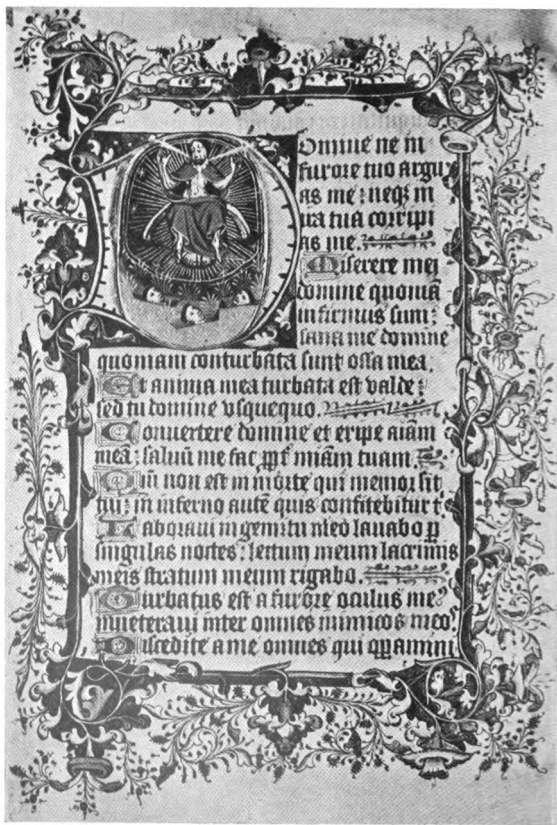 Domine ne in
furore tuo argu
as me: neq3 in
ira tua corripi
as me.
Miserere mei
domine quoniā
infirmus sum:
sana me domine
quoniam conturbata sunt ossa mea.
Et anima mea turbata est valde:
sed tu domine vsquequo.
Conuertere domine et eripe aīam
meā: saluū me fac ꝓpt̄ miām tuam.
Qm̄ non est in morte qui memor sit
tui: in inferno autē quis confitebitur t
Laboraui in gemitu meo lauabo ꝑ
singulas noctes: lectum meum lacrimis
meis stratum meum rigabo.
Turbatus est a furore oculus meꝰ
inueteraui inter omnes inimicos meoˢ
Discedite a me omnes qui oꝑamini